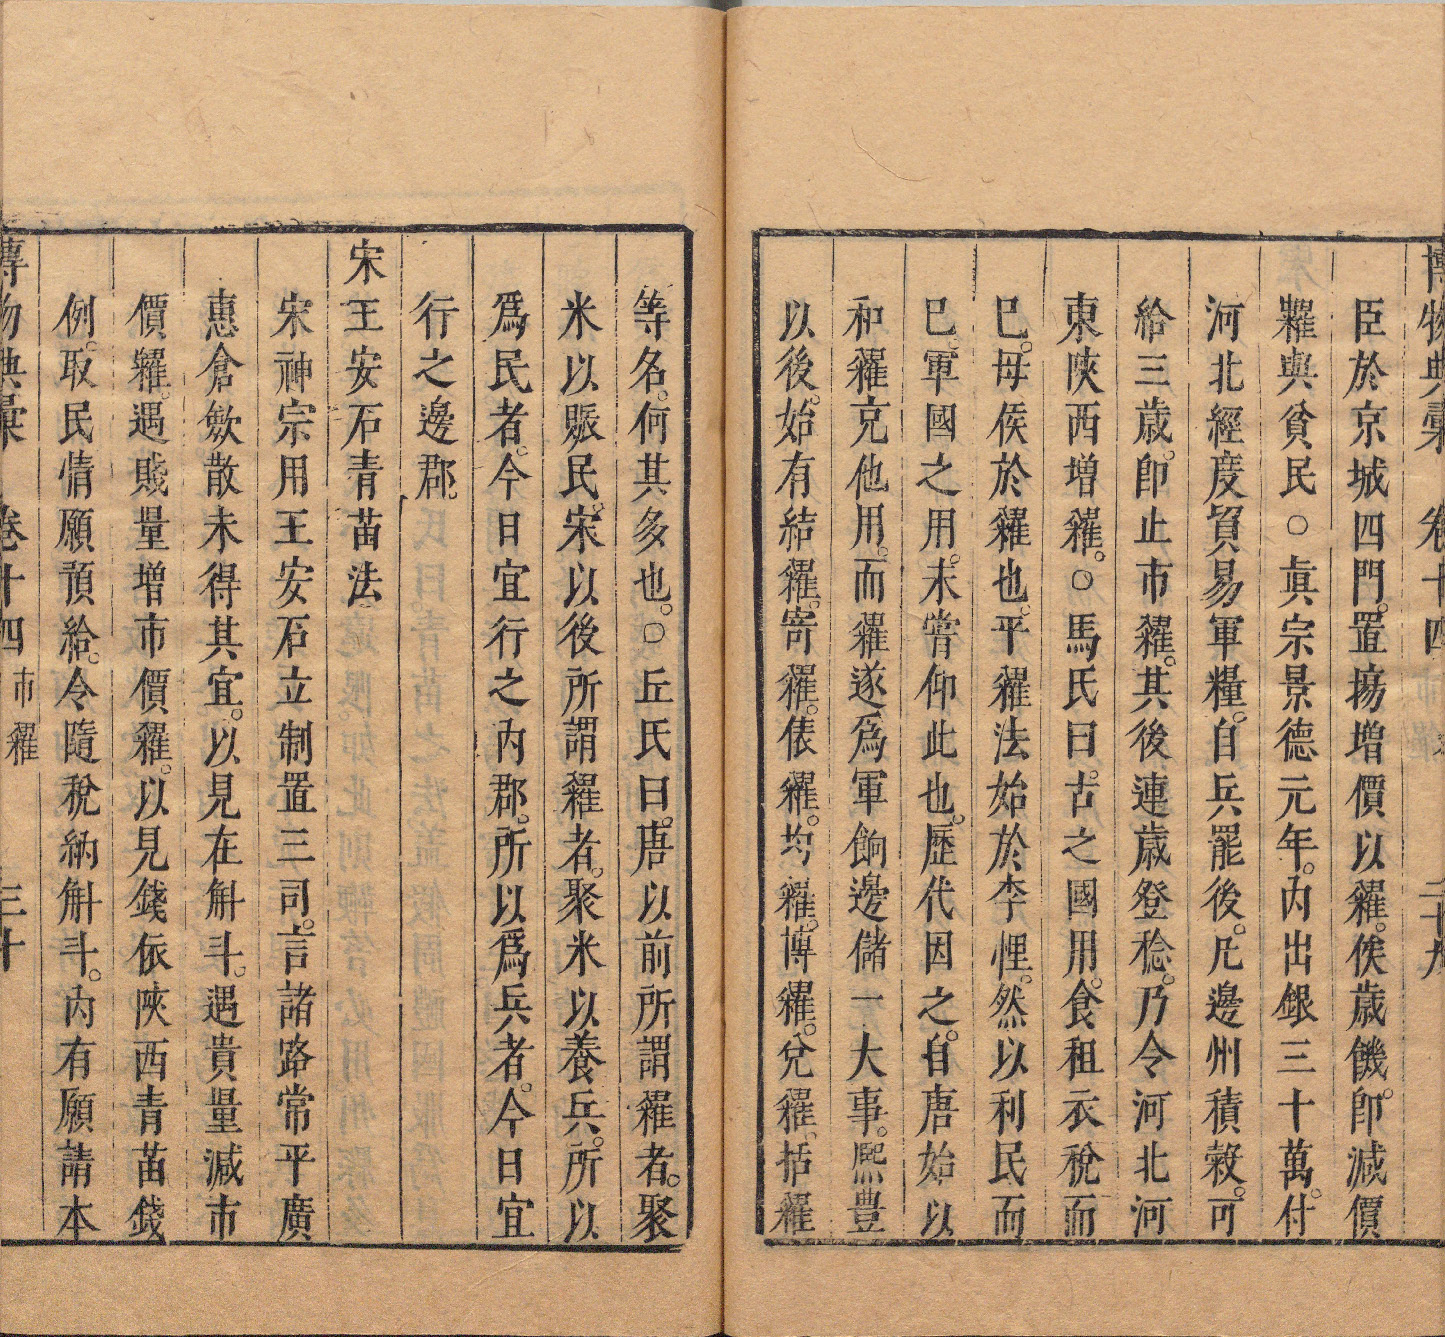 博物典彙 卷十四 二十九
臣於京城四門。置塲增價以糴。俟歲饑。卽減價
糶與貧民○眞宗景德元年。內出銀三十萬。付
河北經度貿易軍糧。自兵罷後。凡邊州積穀。可
給三歲。卽止市糴。其後連歲登稔。乃令河北河
東陝西增糴。○馬氏曰。古之國用。食租衣稅而
已。毋俟於糴也。平糴法始於李悝。然以利民而
已。軍國之用。未嘗仰此也。歷代因之。自唐始以
和糴充他用。而糴遂爲軍餉邊儲一大事。熙豐
以後。始有結糴。寄糴。俵糴。均糴。博糴。兌糴。括糴
等名。何其多也。○丘氏曰。唐以前所謂糴者。聚
米以賑民。宋以後所謂糴者。聚米以養兵。所以
爲民者。今日宜行之內郡。所以爲兵者。今日宜
行之邊郡。
宋王安石青苗法
宋神宗用王安石立制置三司。言諸路常平廣
惠倉斂散未得其宜。以見在斛斗。遇貴量減市
價糶。遇賤量增市價糴。以見錢依陝西青苗錢
例。取民情願預給。令隨稅納斛斗。內有願請本
博物典彙 卷十四 市糴 三十